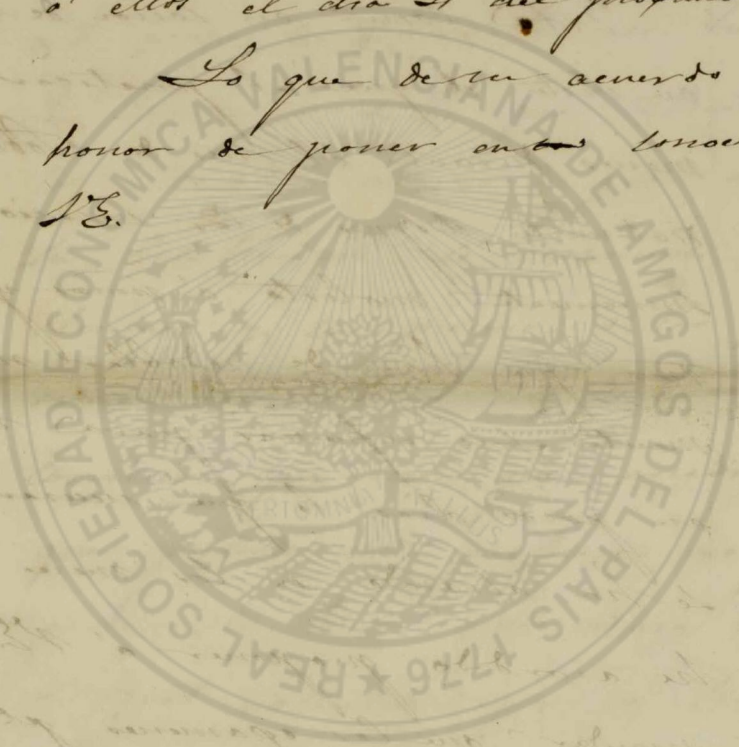 ó ellos el dia del
Lo que de su acuerdo
honor de poner en
V.E.
REAL SOCIEDAD ECONOMICA VALENCIANA DE AMIGOS DEL PAIS 1776
FERT OMNIA TELLUS